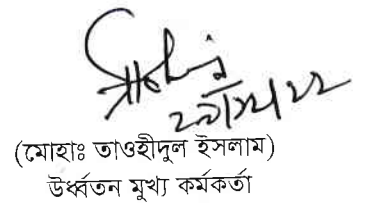 (মোহাঃ তাওহীদুল ইসলাম)
উর্ধ্বতন মুখ্য কর্মকর্তা